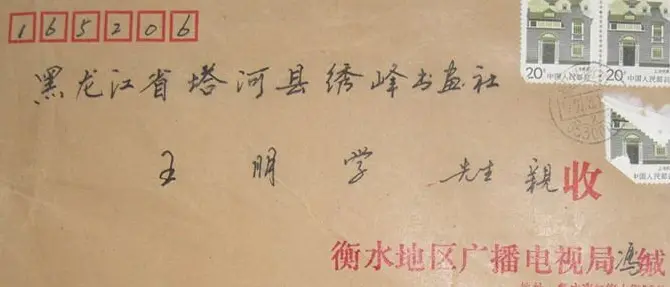 165206
20 20
中国人民邮政 中国人民邮政
黑龙江省塔河县绣峰书画社
中国人民邮政
王明学 先生 親收
衡水地区广播电视局 冯缄